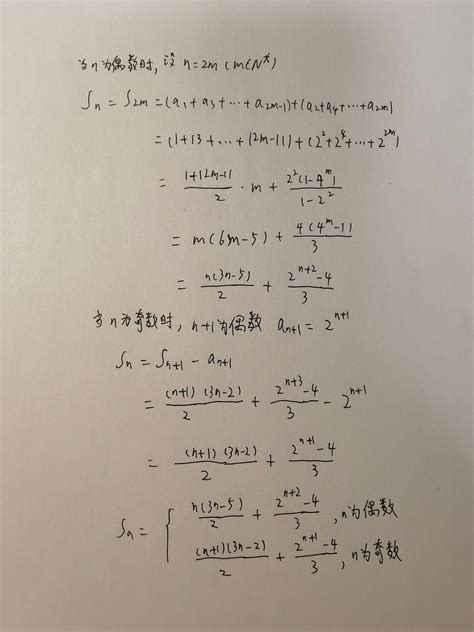 当n为偶数时,设 n=2m (m∈N*)
Sn = S2m = (a1+a3+⋯+a2m-1)+(a2+a4+⋯+a2m)
= (1+13+⋯+12m-11)+(2^2+2^4+⋯+2^2m)
= (1+12m-11)/2 · m + 2^2(1-4^m)/(1-2^2)
= m(6m-5) + 4(4^m-1)/3
= n(3n-5)/2 + (2^(n+2)-4)/3
当n为奇数时, n+1为偶数 an+1 = 2^(n+1)
Sn = Sn+1 - an+1
= (n+1)(3n-2)/2 + (2^(n+3)-4)/3 - 2^(n+1)
= (n+1)(3n-2)/2 + (2^(n+1)-4)/3
Sn = { n(3n-5)/2 + (2^(n+2)-4)/3 , n为偶数
(n+1)(3n-2)/2 + (2^(n+1)-4)/3 , n为奇数